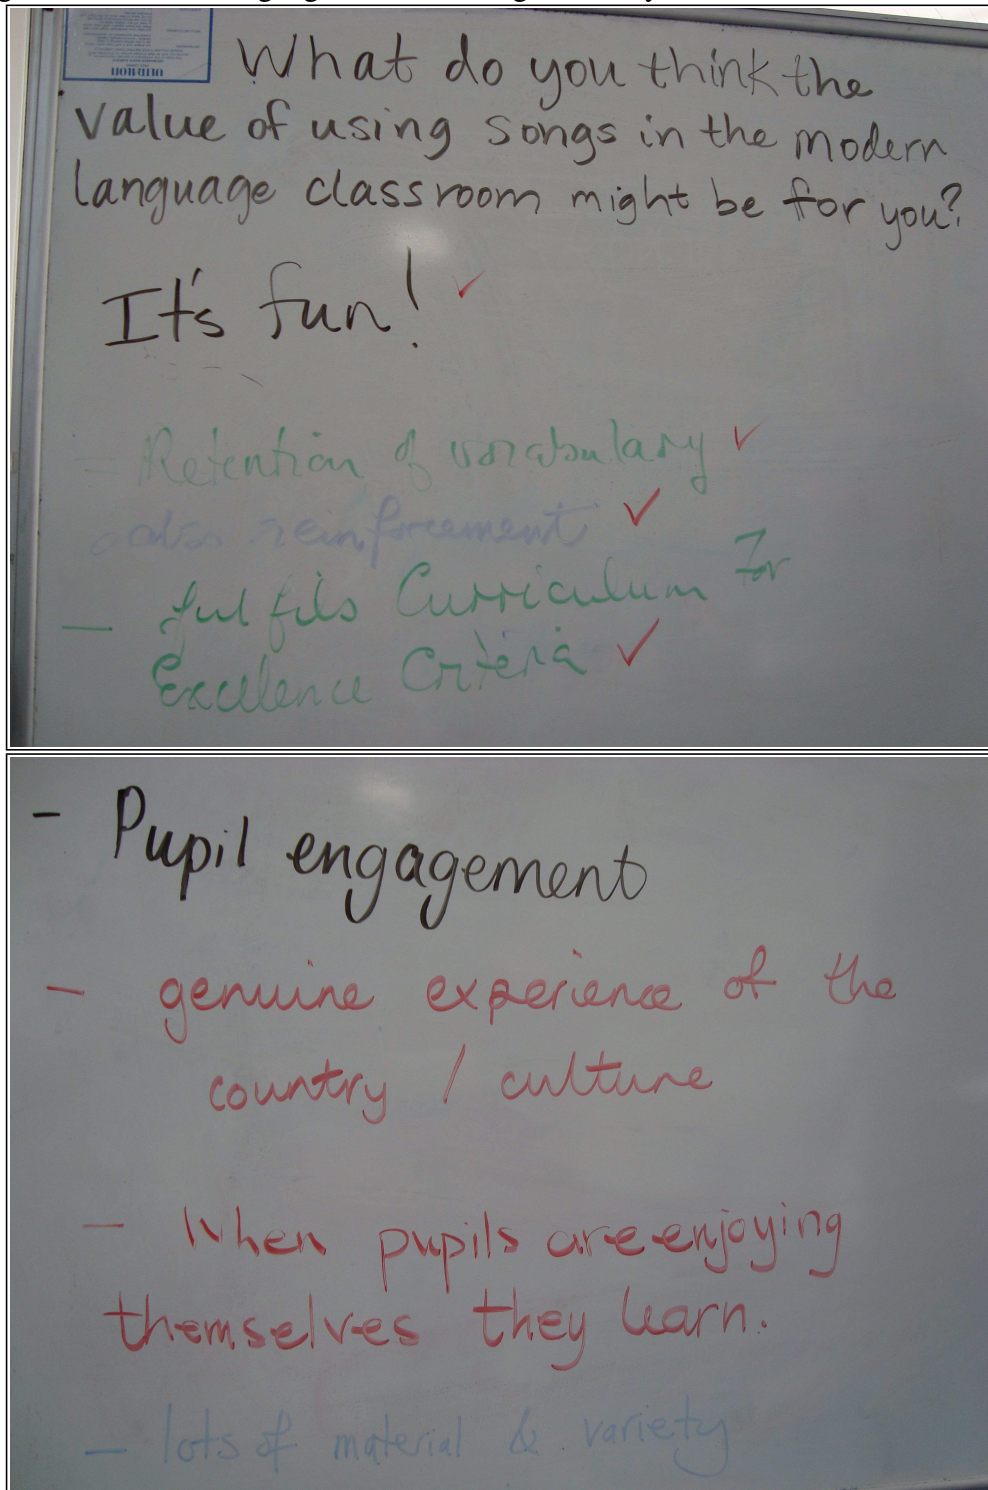 What do you think the
value of using songs in the modern
language classroom might be for you?
It's fun! ✓
- Retention of vocabulary ✓
also reinforcement ✓
- fulfils Curriculum For
Excelence Criteria ✓
- Pupil engagement
- genuine experience of the
country / culture
- When pupils are enjoying
themselves they learn.
- lots of material & variety